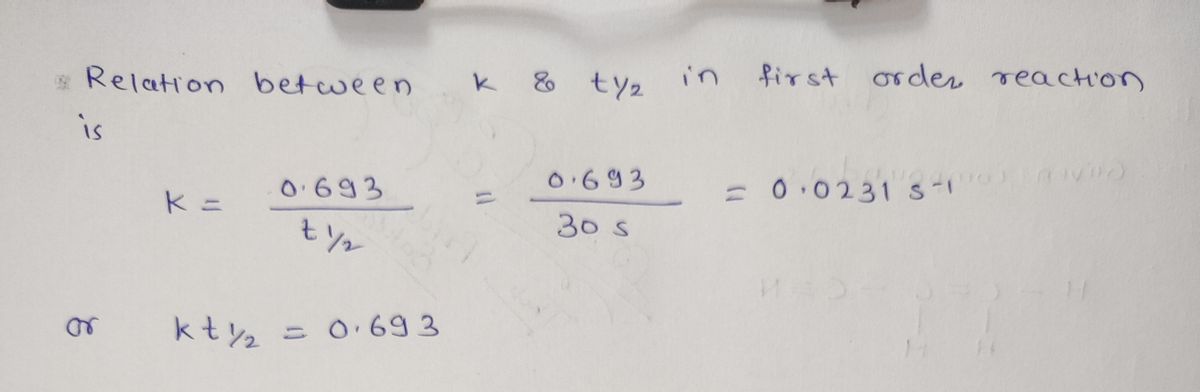 Relation between k & t½ in first order reaction
is
k = 0.693 / t½ = 0.693 / 30 s = 0.0231 s⁻¹
or k t½ = 0.693